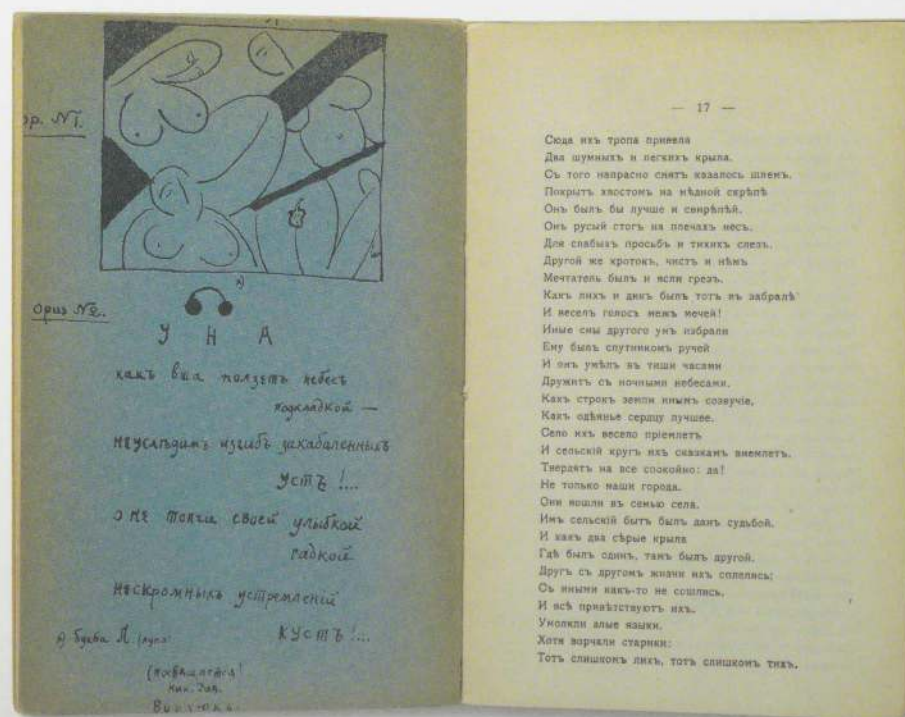 ор. №1.
опиз №2.
У Н А
какъ вша ползетъ небесъ
подкладкой —
неуслѣдимъ изгибъ закабаленныхъ
устъ !...
о не топчи своей улыбкой
гадкой
нескромныхъ устремленій
кустъ !...
буква Л
(посвящается
— 17 —
Сюда ихъ тропа привела
Два шумныхъ и легкихъ крыла.
Съ того напрасно снятъ казалось шлемъ.
Покрытъ хвостомъ на мѣдной скрѣпѣ
Онъ былъ бы лучше и свирѣпѣй.
Онъ русый стогъ на плечахъ несъ.
Для слабыхъ просьбъ и тихихъ слезъ.
Другой же кротокъ, чистъ и нѣмъ
Мечтатель былъ и ясли грезъ.
Какъ лихъ и дикъ былъ тотъ въ забралѣ
И веселъ голосъ межъ мечей!
Иные сны другого умъ избрали
Ему былъ спутникомъ ручей
И онъ умѣлъ въ тиши часами
Дружить съ ночными небесами.
Какъ строкъ земли инымъ созвучіе,
Какъ одѣянье сердцу лучшее.
Село ихъ весело пріемлетъ
И сельскій кругъ ихъ сказкамъ внемлетъ.
Твердятъ на все спокойно: да!
Не только наши города.
Они вошли въ семью села.
Имъ сельскій бытъ былъ данъ судьбой.
И какъ два сѣрые крыла
Гдѣ былъ одинъ, тамъ былъ другой.
Другъ съ другомъ жизни ихъ сплелись;
Съ иными какъ-то не сошлись.
И всѣ привѣтствуютъ ихъ.
Умолкли злые языки.
Хотя ворчали старики:
Тотъ слишкомъ лихъ, тотъ слишкомъ тихъ.